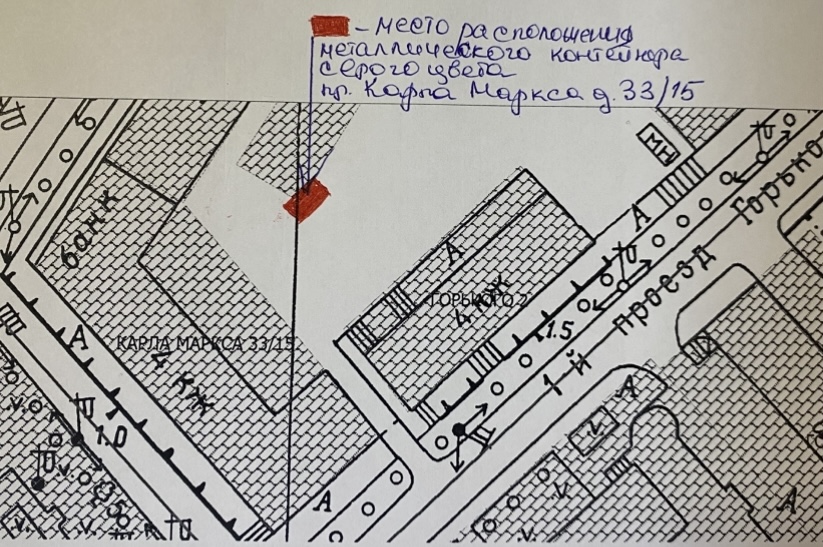 – место расположения
металлического контейнера
серого цвета
пр. Карла Маркса д. 33/15
МН
банк
А
А
ГОРЬКОГО 2
4 КЖ
1-й проезд Горько
1.5
КАРЛА МАРКСА 33/15
А
4 КЖ
1.0
А
А
А